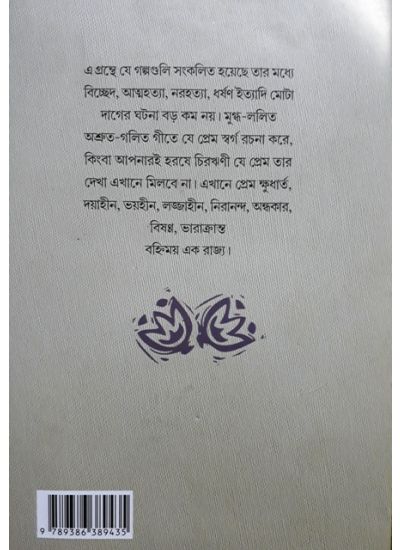 এ গ্রন্থে যে গল্পগুলি সংকলিত হয়েছে তার মধ্যে
বিচ্ছেদ, আত্মহত্যা, নরহত্যা, ধর্ষণ ইত্যাদি মোটা
দাগের ঘটনা বড় কম নয়। মুগ্ধ-ললিত
অশ্রুত-গলিত গীতে যে প্রেম স্বর্গ রচনা করে,
কিংবা আপনারই হরষে চিরঋণী যে প্রেম তার
দেখা এখানে মিলবে না। এখানে প্রেম ক্ষুধার্ত,
দয়াহীন, ভয়হীন, লজ্জাহীন, নিরানন্দ, অন্ধকার,
বিষণ্ণ, ভারাক্রান্ত
বহ্নিময় এক রাজ্য।
9 789386 389435